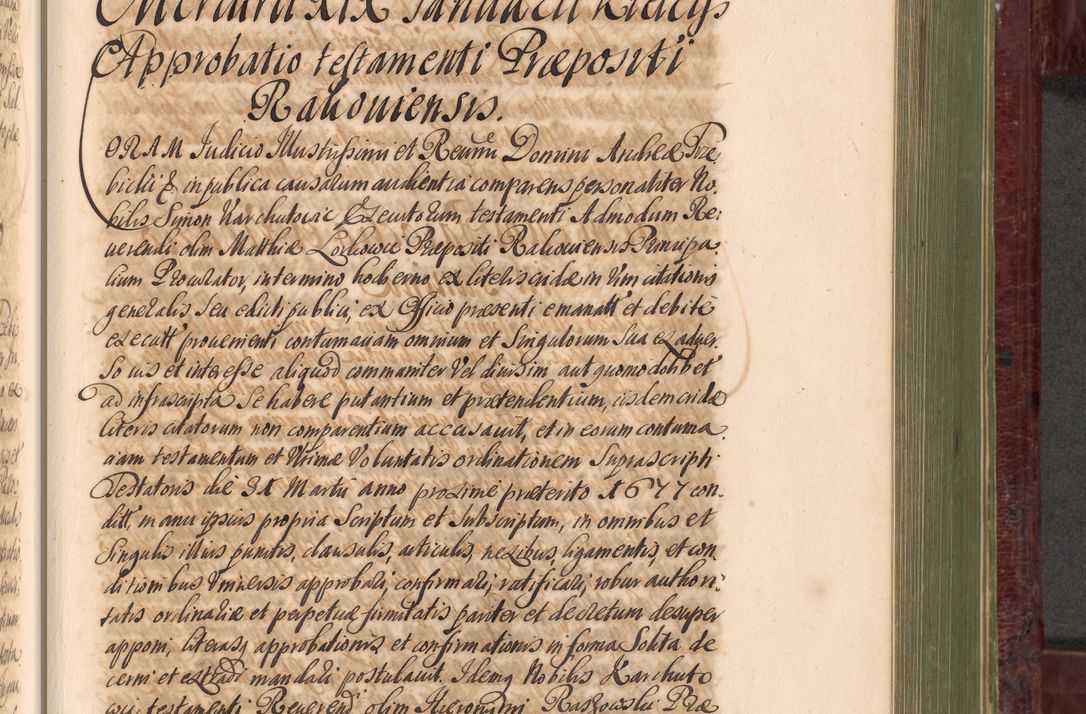 Approbatio testamenti Præpositi
Rakouiensis.
ORAM Judicio Illustrissimi et Reuermi Domini Andreæ Trze
bicki & in publica causarum audientia comparens personaliter No,
bilis Symon Karchutowic Executorum testamenti Admodum Re:
uerendi olim Matthiæ Præpositi Rakouiensis Principa
lium Procurator, in termino hodierno ex literis cridæ in vim citationis
generalis seu edicti publici, ex Officio præsenti emanatt et debite
executt prouenienti contumaciam omnium et Singulorum Sua ex aduer,
so ius et interesse aliquod communiter Vel diuisim aut quomodolibet
ad infrascripta Se habere putantium et prætendentium, iisdem cridæ
literis citatorum non comparentium accusauit, et in eorum contuma
ciam testamentum et Vltimæ Voluntatis ordinationem Suprascripti
Testatoris die Martii anno proxime præterito 1677 con.
ditt, manu ipsius propria Scriptum et Subscriptum, in omnibus et
Singulis illius punctis, clausulis, articulis, nexibus, ligamentis, et con
ditionibus Vniuersis approbari, confirmari, ratificari, robur authori:
tatis ordinariæ et perpetuæ firmitatis pariter et decretum desuper
apponi, literasq approbationis et confirmationis in forma Solita de
cerni et extradi mandari postulauit. Idemq Nobilis Karchuto
wic testamenti Reuerend olim Hieronimi Raszowski Præ